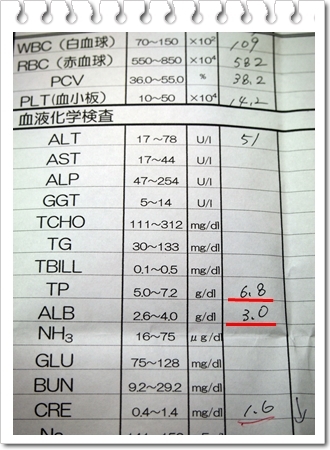 WBC (白血球) 70~150 ×10² 109
RBC (赤血球) 550~850 ×10⁴ 582
PCV 36.0~55.0 % 38.2
PLT(血小板) 10~50 ×10⁴ 14.2
血液化学検査
ALT 17~78 U/l 51
AST 17~44 U/l
ALP 47~254 U/l
GGT 5~14 U/l
TCHO 111~312 mg/dl
TG 30~133 mg/dl
TBILL 0.1~0.5 mg/dl
TP 5.0~7.2 g/dl 6.8
ALB 2.6~4.0 g/dl 3.0
NH₃ 16~75 μg/dl
GLU 75~128 mg/dl
BUN 9.2~29.2 mg/dl
CRE 0.4~1.4 mg/dl 1.6 ↓